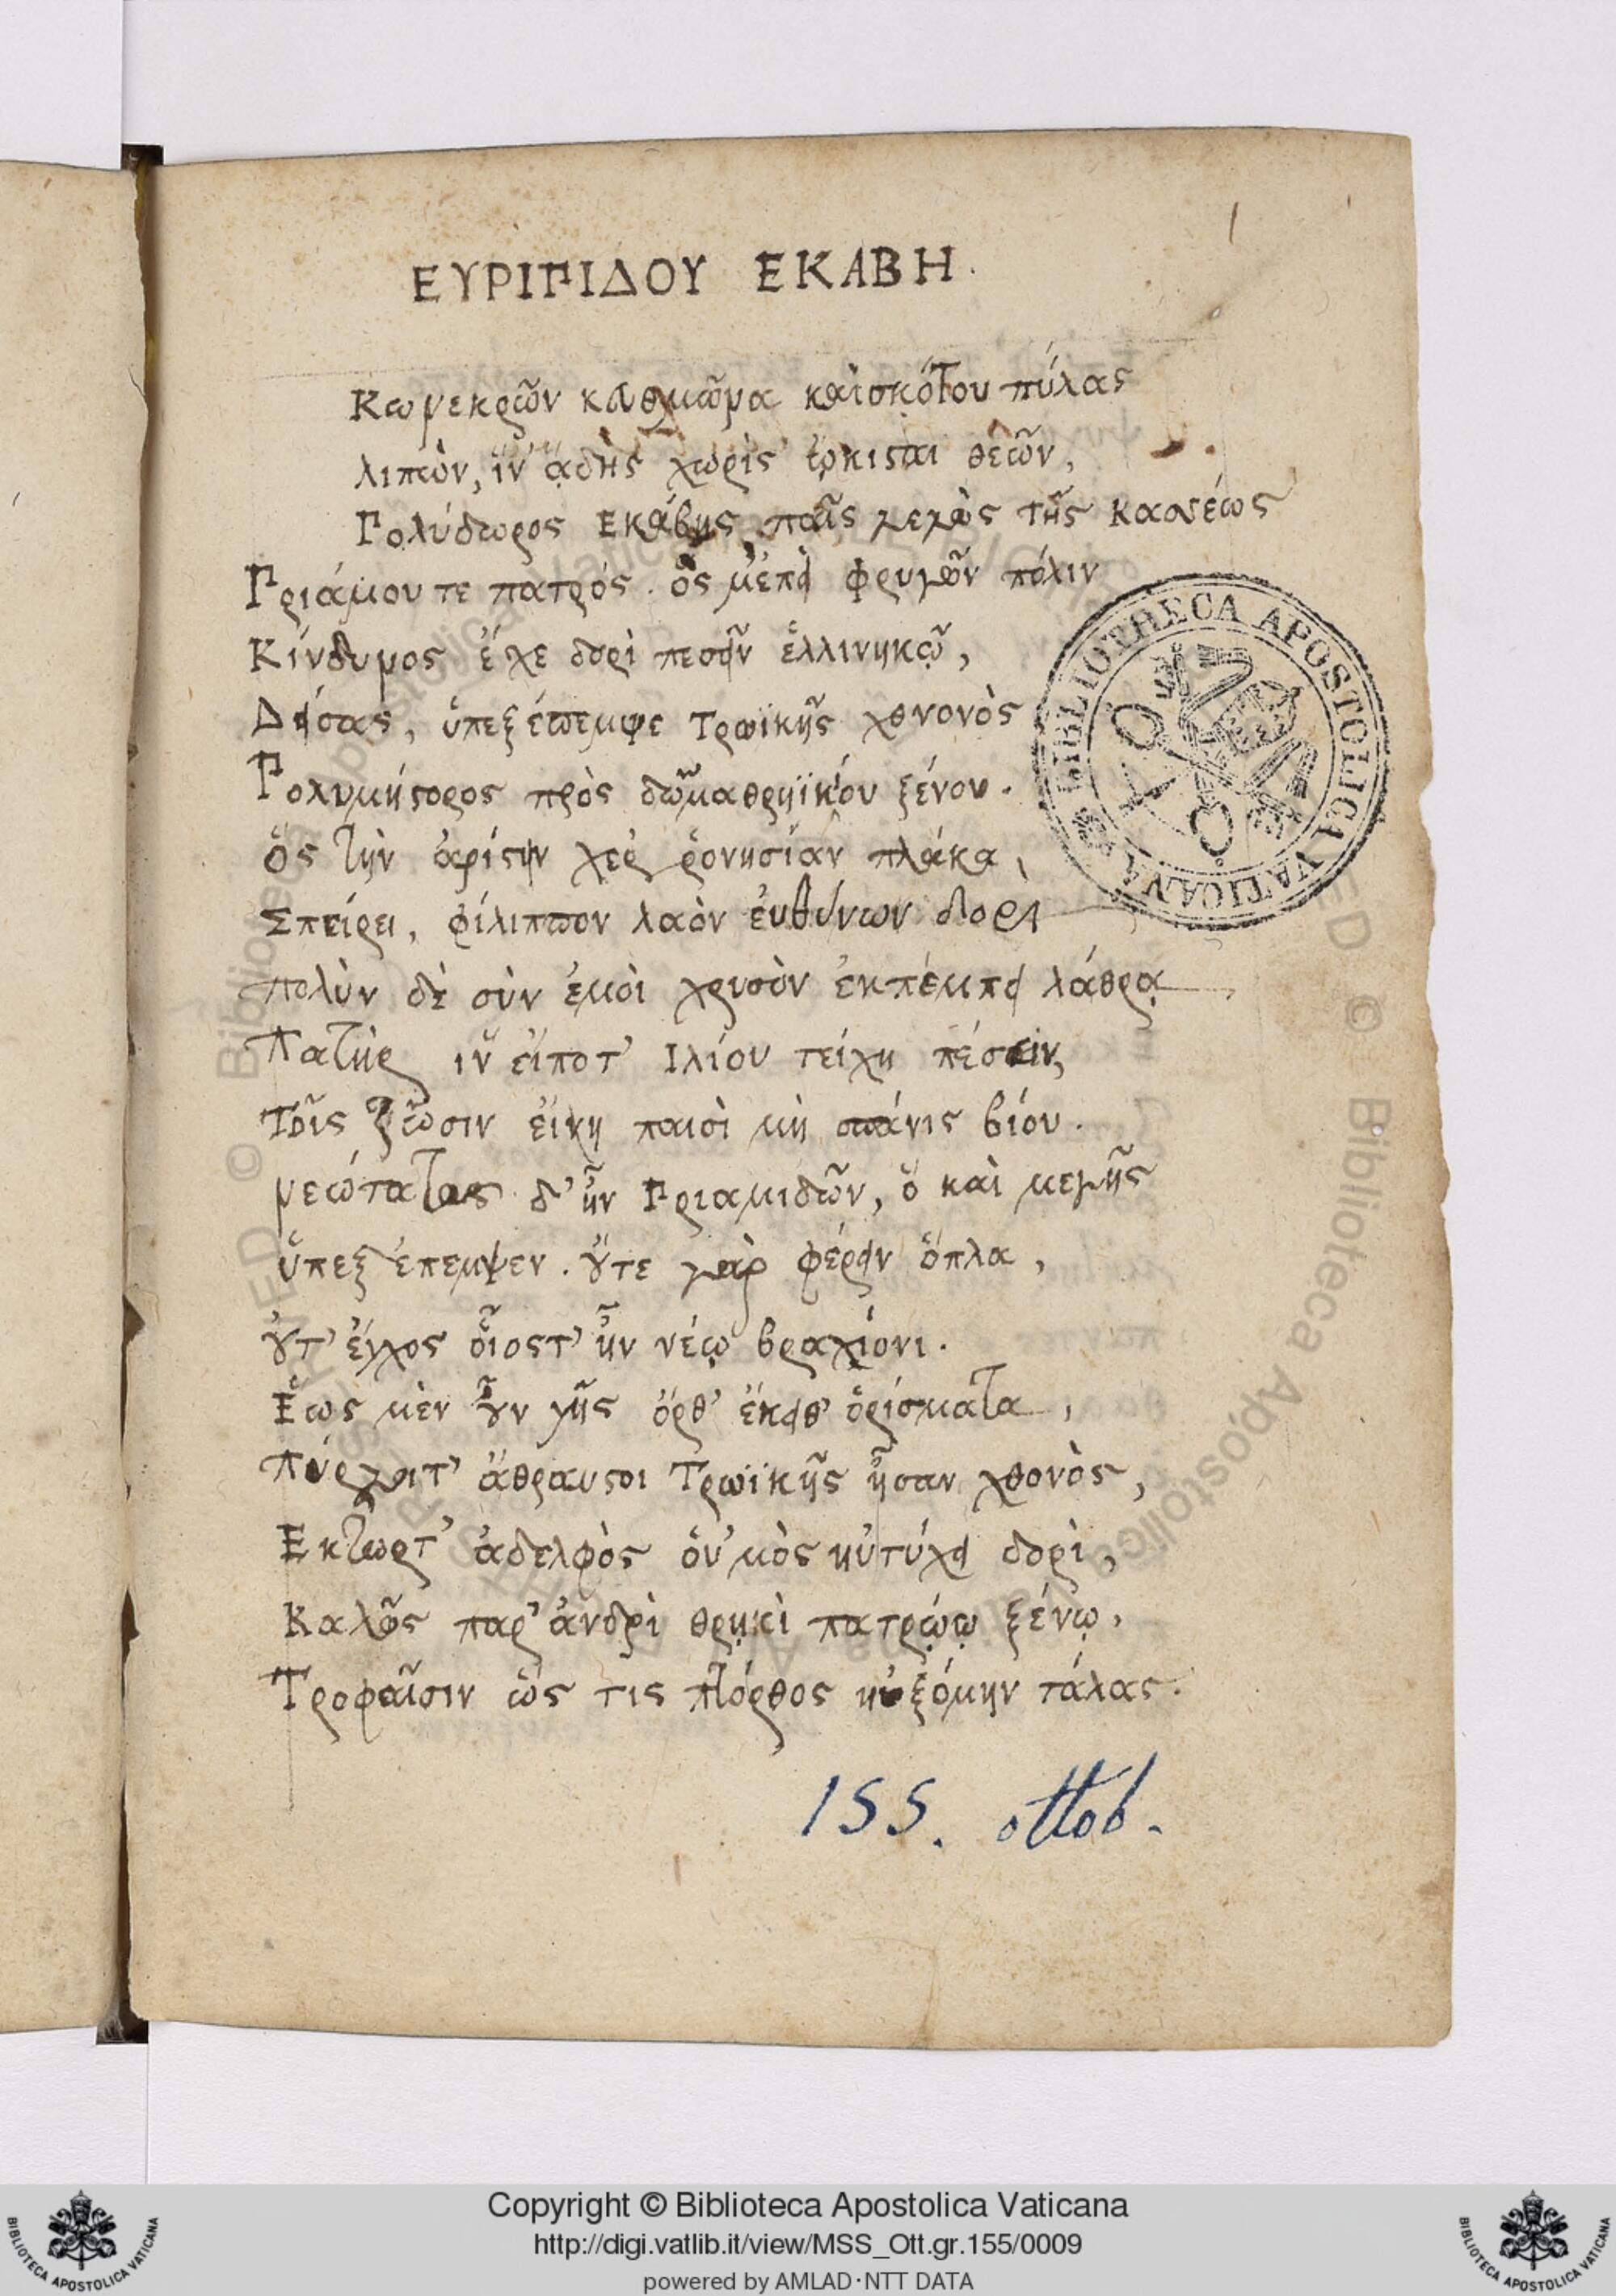 ΕΥΡΙΠΙΔΟΥ ΕΚΑΒΗ.
Κω νεκρῶν καθμῶνα καὶ σκότου πύλας
λιπὼν, ἵν' ᾅδης χωρὶς ὤκισται θεῶν,
Πολύδωρος Εκάβης παῖς γεγὼς τῆς
Πριάμου τε πατρός. ὅς μ' ἐπεὶ φρυγῶν πόλιν
Κίνδυνος ἔχε δορὶ πεσεῖν ἑλλινηκῷ,
Δείσας, ὑπεξέπεμψε Τρωϊκῆς χθνονὸς
Πολυμήστορος πρὸς δῶμα θρηϊκίου ξένου.
ὅς τὴν ἀρίστην χερῤονησίαν πλάκα,
Σπείρει, φίλιππον λαὸν ἐυθύνων δορὶ
πολὺν δὲ σὺν ἐμοὶ χρυσὸν ἐκπέμπει λάθρᾳ
Πατὴρ ἵν' εἴποτ' Ιλίου τείχη πέσειν,
Τοῖς ζῶσιν εἴη παισὶ μὴ σπάνις βίου.
νεώτατος δ' ἦν Πριαμιδῶν, ὅ καὶ με γῆς
ὑπεξέπεμψεν. οὔτε γὰρ φέρειν ὅπλα,
οὔτ' ἔγχος οἷοστ' ἦν νέῳ βραχίονι.
Εως μὲν οὖν γῆς ὄρθ' ἔκειθ' ὁρίσματα,
Πύργοιτ' ἄθραυστοι Τρωϊκῆς ἦσαν χθονὸς,
Εκτωρτ' ἀδελφὸς οὑμὸς ηὐτύχει δορὶ,
Καλῶς παρ' ἀνδρὶ θρῃκὶ πατρῴῳ ξένῳ,
Τροφαῖσιν ὥς τις πτόρθος ηὐξόμην τάλας.
155. ottob.
BIBLIOTHECA APOSTOLICA VATICANA
Copyright © Biblioteca Apostolica Vaticana
http://digi.vatlib.it/view/MSS_Ott.gr.155/0009
powered by AMLAD·NTT DATA
BIBLIOTECA APOSTOLICA VATICANA
BIBLIOTECA APOSTOLICA VATICANA